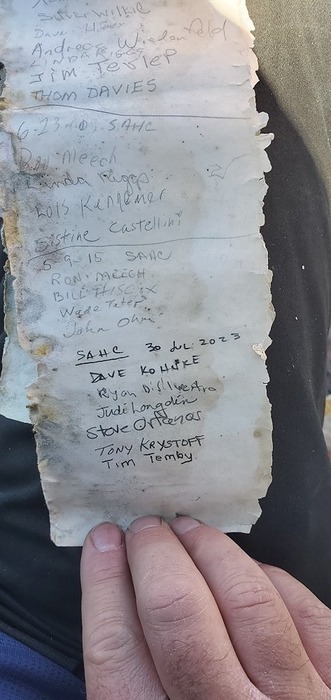 Dave
Andrea
LINDA RIGGS
JIM TESLEP
THOM DAVIES
6-23-01 SAHC
Ron Meech
Linda Riggs
Lois Kemmerer
Sistine Castellini
5-9-15 SAHC
RON MEECH
BILL
Wade Tater
John Ohm
SAHC 30 JUL 2023
DAVE KOHSKE
Ryan DiSilvestro
Judi Longden
Steve
TONY KRYSTOFF
Tim Temby